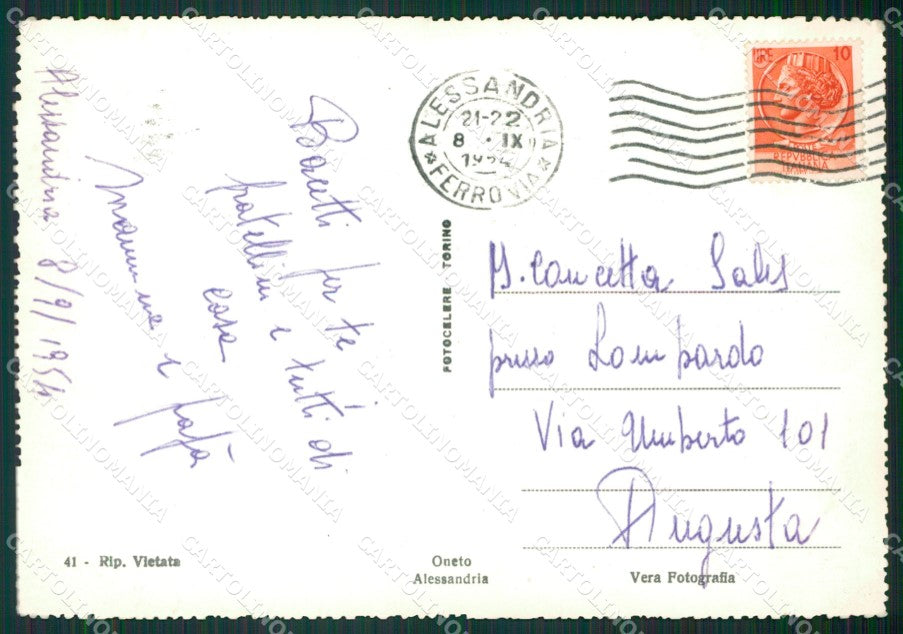 Alessandria 8/9/1954
Bacetti per te
fratellini e tutti di
casa
Mamma e papà
ALESSANDRIA
21-22
8 IX
1954
FERROVIA
LIRE 10
REPVBBLICA
ITALIANA
FOTOCELERE TORINO
M. Concetta Sales
presso Lombardo
Via Umberto 101
Augusta
41 - Rip. Vietata
Oneto
Alessandria
Vera Fotografia
CARTOLINOMANIA